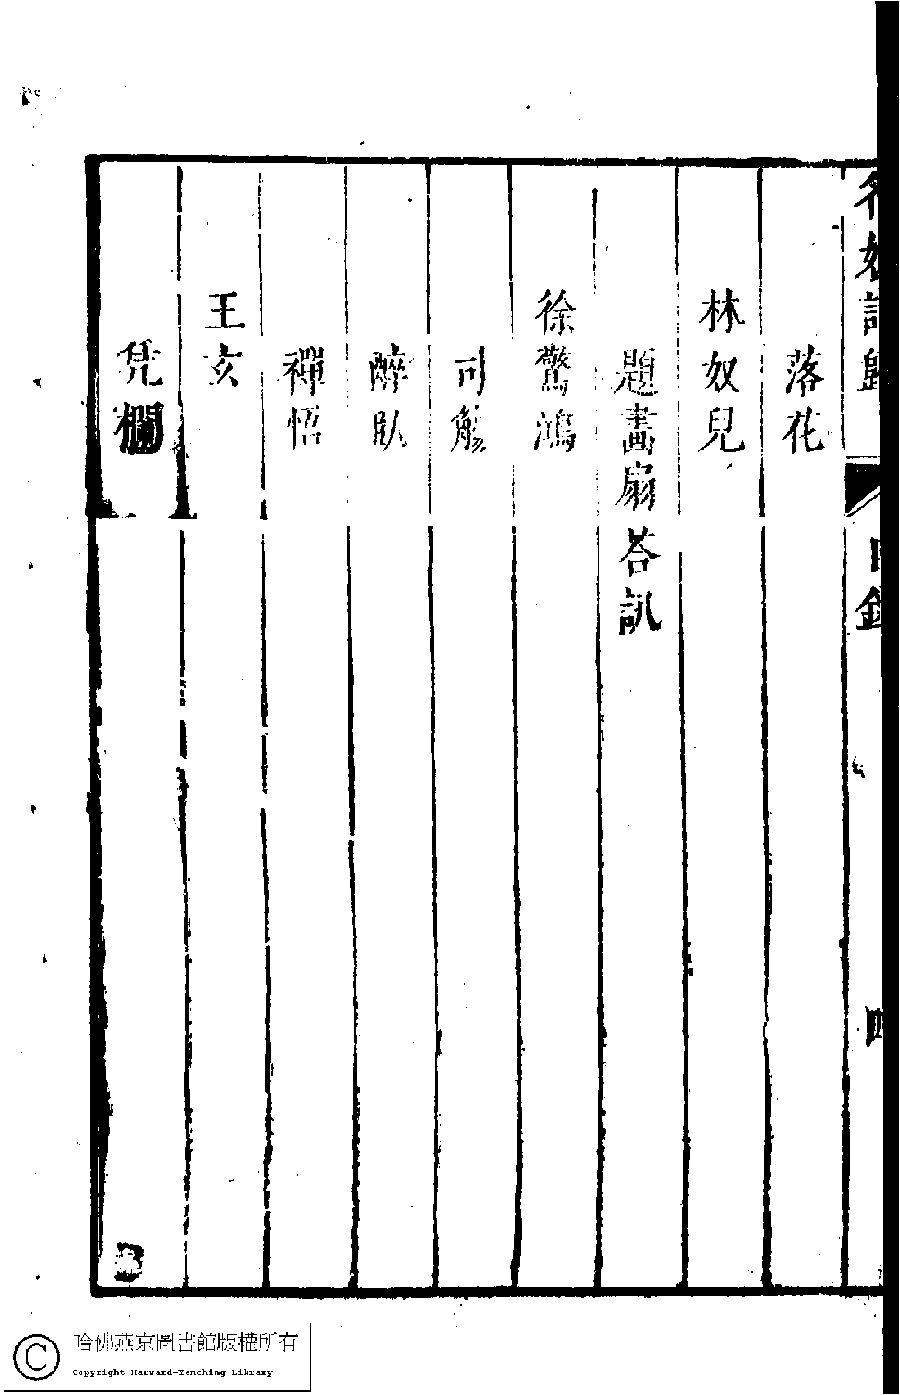 落花
林奴兒
題畫扇荅訊
徐驚鴻
司觴
醉臥
禪悟
王亥
凭欄
目錄
四
哈佛燕京圖書館版權所有
Copyright Harvard-Yenching Library